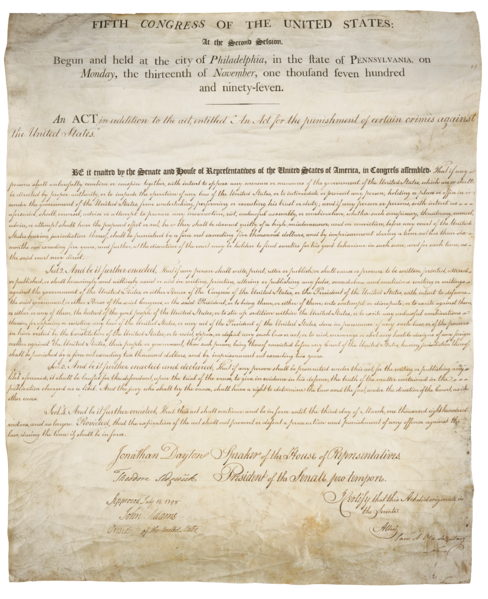 FIFTH CONGRESS OF THE UNITED STATES:
At the Second Session,
Begun and held at the city of Philadelphia, in the state of PENNSYLVANIA, on
Monday, the thirteenth of November, one thousand seven hundred
and ninety-seven.
An ACT in addition to the act, entitled "An Act for the punishment of certain crimes against
the United States."
BE it enacted by the Senate and House of Representatives of the United States of America, in Congress assembled. That if any
persons shall unlawfully combine or conspire together, with intent to oppose any measure or measures of the government of the United States, which are or shall
be directed by proper authority, or to impede the operation of any law of the United States, or to intimidate or prevent any person, holding a place or office in or
under the government of the United States, from undertaking, performing or executing his trust or duty; and if any person or persons, with intent as
aforesaid, shall counsel, advise or attempt to procure any insurrection, riot, unlawful assembly, or combination, whether such conspiracy, threatening, counsel,
advice, or attempt shall have the proposed effect or not, he or they shall be deemed guilty of a high misdemeanor, and on conviction, before any court of the United
States having jurisdiction thereof, shall be punished by a fine not exceeding five thousand dollars, and by imprisonment during a term not less than six
months nor exceeding five years; and further, at the discretion of the court may be holden to find sureties for his good behaviour in such sum, and for such time, as
the said court may direct.
Sect. 2. And be it further enacted, That if any person shall write, print, utter or publish, or shall cause or procure to be written, printed, uttered
or published, or shall knowingly and willingly assist or aid in writing, printing, uttering or publishing any false, scandalous and malicious writing or writings
against the government of the United States, or either House of the Congress of the United States, or the President of the United States, with intent to defame
the said government, or either House of the said Congress, or the said President, or to bring them, or either of them, into contempt or disrepute; or to excite against them,
or either or any of them, the hatred of the good people of the United States,
shall be punished by a fine not exceeding two thousand dollars, and by imprisonment not exceeding two years.
Sect. 3. And be it further enacted and declared, That if any person shall be prosecuted under this act, for the writing or publishing any
libel aforesaid, it shall be lawful for the defendant, upon the trial of the cause, to give in evidence in his defence, the truth of the matter contained in the
publication charged as a libel. And the jury who shall try the cause, shall have a right to determine the law and the fact, under the direction of the court, as in
other cases.
Sect. 4. And be it further enacted, That this act shall continue and be in force until the third day of March, one thousand eight hundred
and one, and no longer: Provided, that the expiration of the act shall not prevent or defeat a prosecution and punishment of any offence against the
law, during the time it shall be in force.
Jonathan Dayton Speaker of the House of Representatives.
Theodore Sedgwick President of the Senate pro tempore.
Approved July 14, 1798
John Adams
President of the United States
I Certify that this Act did originate in
the Senate.
Attest,
Secretary